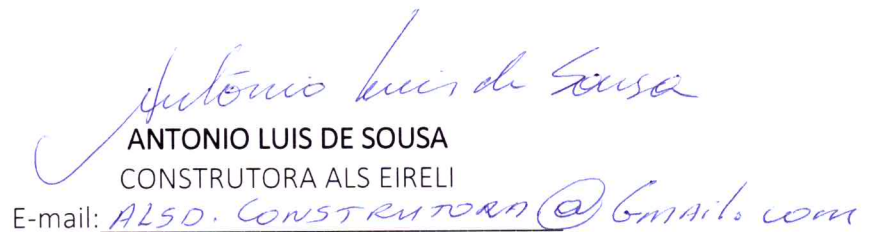 António Luis de Sousa
ANTONIO LUIS DE SOUSA
CONSTRUTORA ALS EIRELI
E-mail: ALSD.CONSTRUTORA@Gmail.com